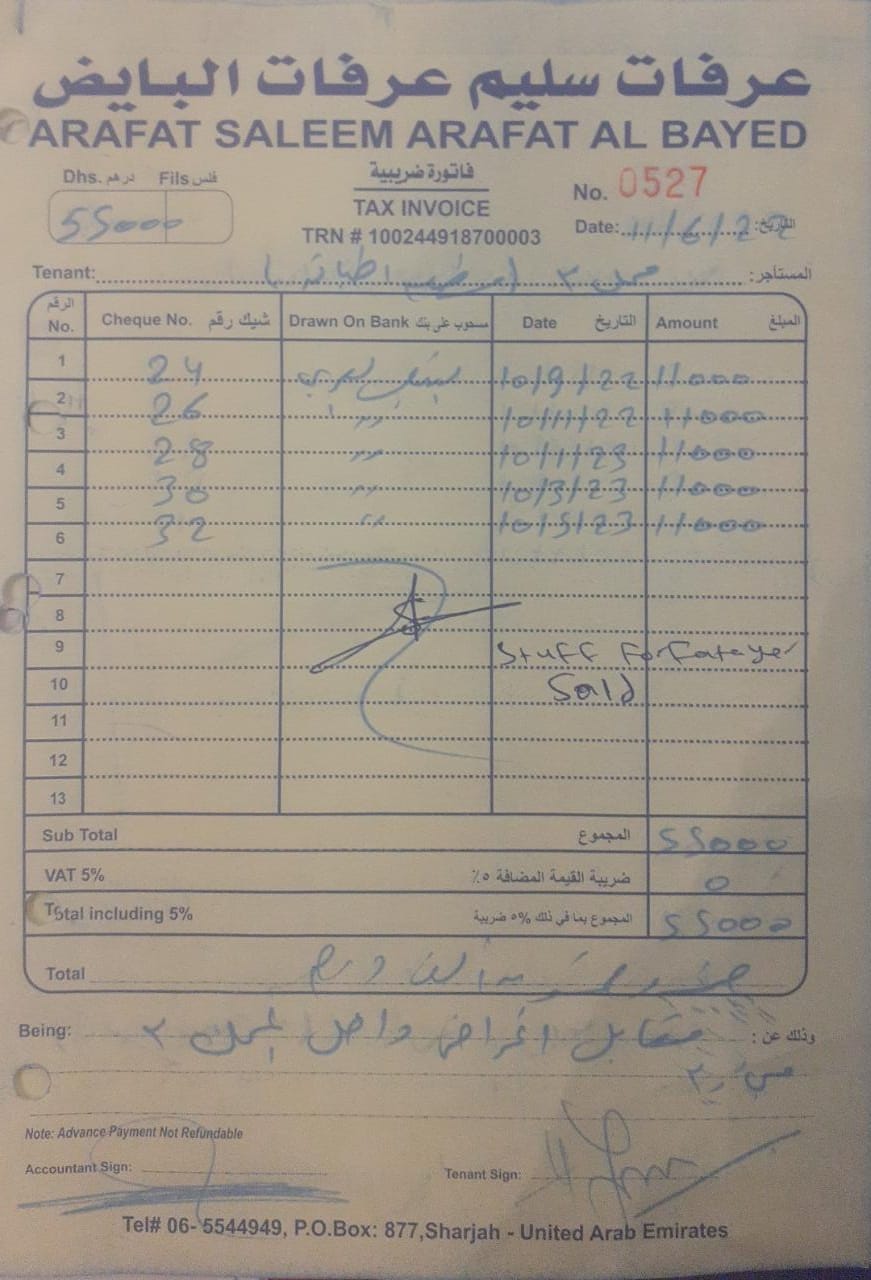 عرفات سليم عرفات البايض
ARAFAT SALEEM ARAFAT AL BAYED
Dhs. درهم Fils فلس
55000
فاتورة ضريبية
TAX INVOICE
TRN # 100244918700003
No. 0527
Date: 11/6/22 التاريخ:
Tenant: محل ٣ المستأجر:
الرقم No. Cheque No. شيك رقم Drawn On Bank مسحوب على بنك Date التاريخ Amount المبلغ
1 24 10/9/22 11000
2 26 10/11/22 11000
3 28 10/1/23 11000
4 30 10/3/23 11000
5 32 10/5/23 11000
6
7
8
9 Stuff For Fatayer
10 Sald
11
12
13
Sub Total المجموع 55000
VAT 5% ضريبة القيمة المضافة ٥٪ 0
Total including 5% المجموع بما في ذلك %٥ ضريبة 55000
Total الف درهم
Being: مقابل اغراض داخل المحل ٣ وذلك عن:
Note: Advance Payment Not Refundable
Accountant Sign: Tenant Sign:
Tel# 06- 5544949, P.O.Box: 877,Sharjah - United Arab Emirates